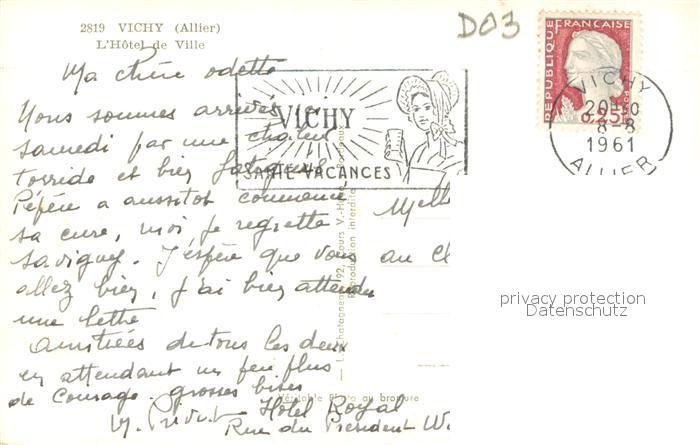 2819 VICHY (Allier)
L'Hôtel de Ville
D03
REPUBLIQUE FRANÇAISE
0,25F
POSTES
VICHY
20H
8-8
1961
ALLIER
VICHY
SANTE-VACANCES
Ma chère odette
Nous sommes arrivés
samedi par une chaleur
torride et bien fatigués
Pépère a aussitot commencé
sa cure, moi je regrette
Savigny. J'espère que vous
allez bien, j'ai bien attendu
une lettre
amitiées de tous les deux
en attendant un peu plus
de courage. grosses bises
Hotel Royal
Rue du Président W
Melle
au
Reproduction interdite
Véritable Photo au bromure
privacy protection
Datenschutz